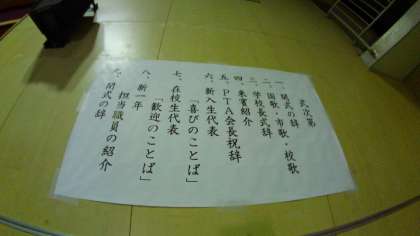 式次第
一、開式の辞
二、国歌・市歌・校歌
三、学校長式辞
四、来賓紹介
五、PTA会長祝辞
六、新入生代表
「喜びのことば」
七、在校生代表
「歓迎のことば」
八、新一年
担当職員の紹介
九、閉式の辞